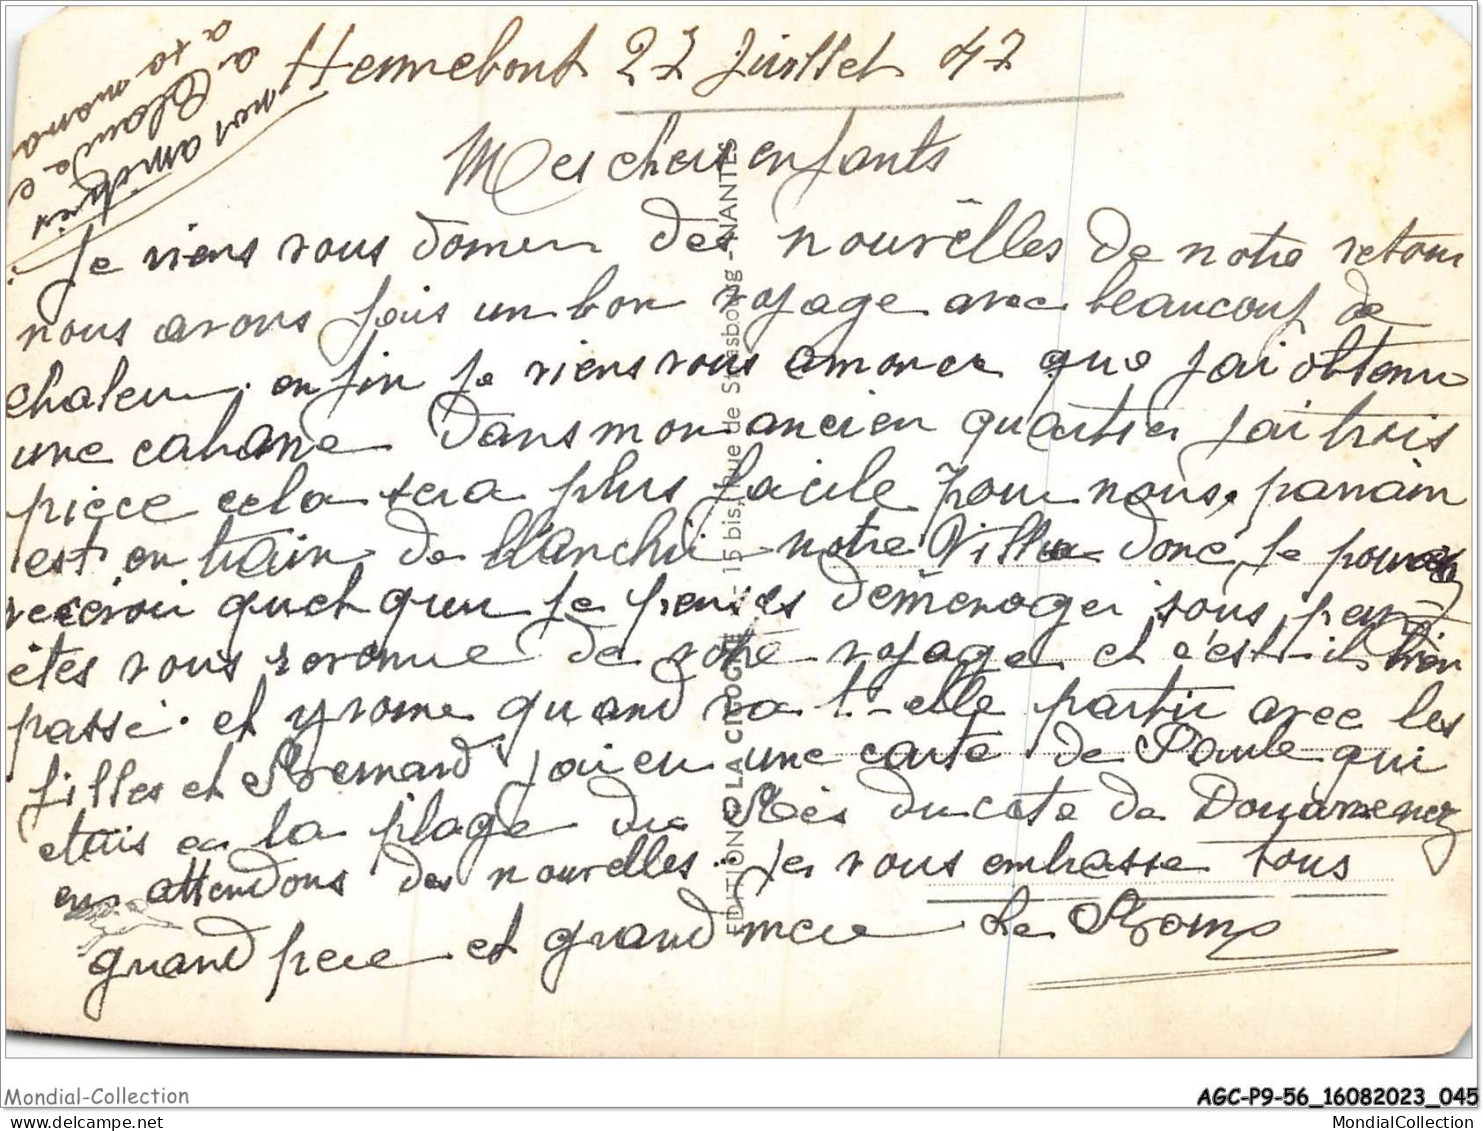 Hennebont 27 Juillet 47
Mes chers enfants
Je viens vous donner des nouvelles de notre retour
nous avons fais un bon voyage avec beaucoup de
chaleur. enfin je viens vous anoncer que j'ai obtenu
une cabane dans mon ancien quartier j'ai trois
piece cela sera plus facile pour nous. parrain
est en train de blanchir notre Villa donc je pourrez
recevoir quelqu'un je penses déménager sous peu
êtes vous revenue de votre voyage et c'est-il bien
passé. et yvonne quand va t-elle partir avec les
filles et Bernard j'ai eu une carte de Paule qui
etais en la plage du Ris du cote de Douarnenez
en attendons des nouvelles. je vous embrasse tous
grand pere et grand mere Le
nos amitiés
a Claude et
a ta mama
EDITIONS LA CIGOGNE - 15 bis, Rue de Strasbourg - NANTES
Mondial-Collection
AGC-P9-56_16082023_045
MondialCollection